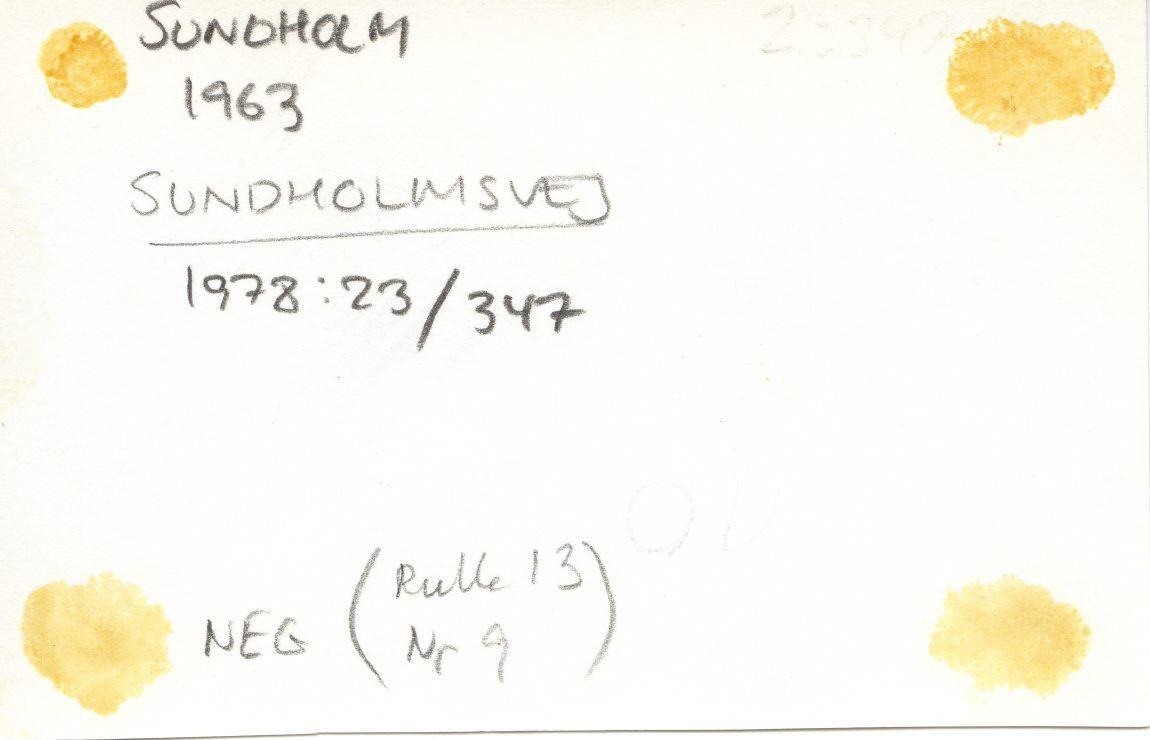 SUNDHOLM
1963
SUNDHOLMSVEJ
1978:23/347
NEG (Rulle 13
Nr 9)